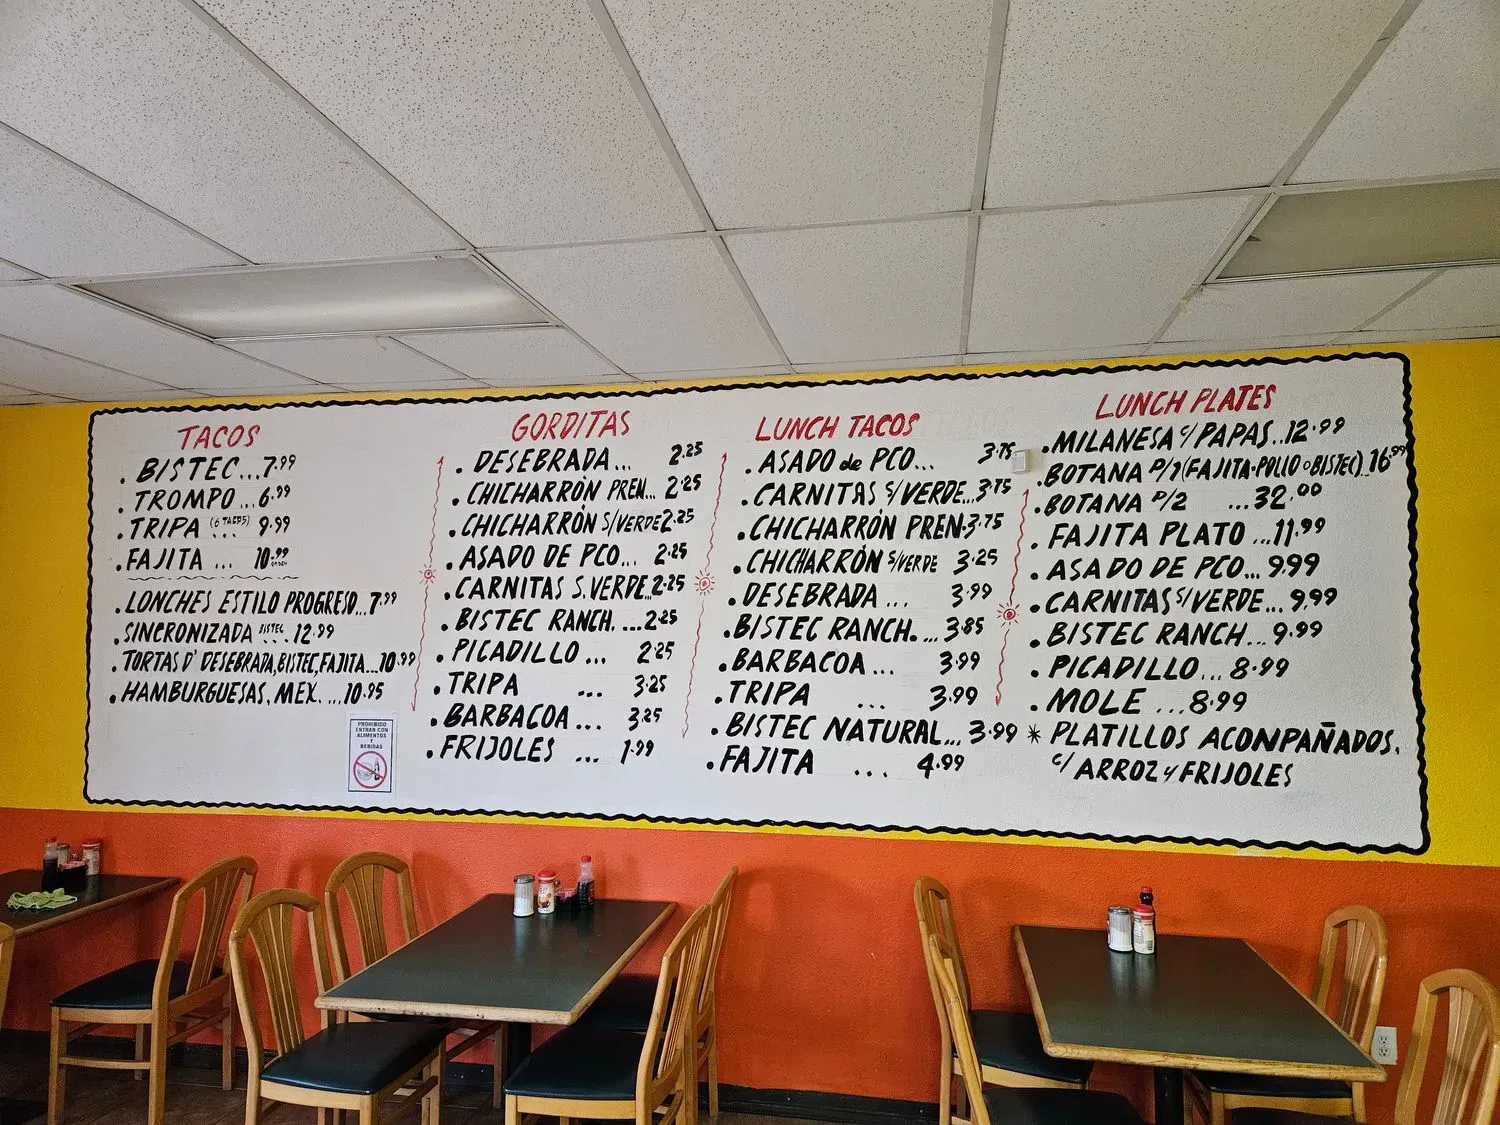 TACOS
. BISTEC...7.99
. TROMPO...6.99
. TRIPA (6 TACOS) ... 9.99
. FAJITA ... 10.99 ORDEN
. LONCHES ESTILO PROGRESO...7.99
. SINCRONIZADA BISTEC ... 12.99
. TORTAS D' DESEBRADA,BISTEC,FAJITA...10.99
. HAMBURGUESAS, MEX. ...10.95
PROHIBIDO
ENTRAR CON
ALIMENTOS
Y
BEBIDAS
GORDITAS
. DESEBRADA... 2.25
. CHICHARRÓN PREN... 2.25
. CHICHARRÓN S/VERDE 2.25
. ASADO DE PCO... 2.25
. CARNITAS S.VERDE.2.25
. BISTEC RANCH. ...2.25
. PICADILLO ... 2.25
. TRIPA ... 3.25
. BARBACOA ... 3.25
. FRIJOLES ... 1.99
LUNCH TACOS
. ASADO de PCO... 3.75
. CARNITAS S/VERDE...3.75
. CHICHARRÓN PREN.3.75
. CHICHARRÓN S/VERDE 3.25
. DESEBRADA ... 3.99
. BISTEC RANCH. ...3.85
. BARBACOA ... 3.99
. TRIPA ... 3.99
. BISTEC NATURAL... 3.99
. FAJITA ... 4.99
LUNCH PLATES
. MILANESA C/PAPAS..12.99
. BOTANA P/1 (FAJITA-POLLO o BISTEC)...16.99
. BOTANA P/2 ...32.00
. FAJITA PLATO ...11.99
. ASADO DE PCO... 9.99
. CARNITAS S/VERDE... 9.99
. BISTEC RANCH... 9.99
. PICADILLO... 8.99
. MOLE ...8.99
* PLATILLOS ACONPAÑADOS.
C/ ARROZ Y FRIJOLES